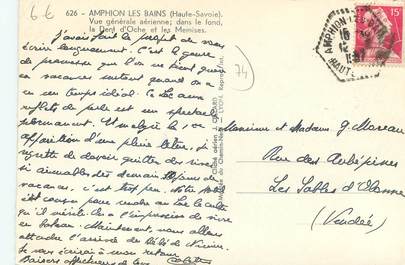 6 €
626 - AMPHION LES BAINS (Haute-Savoie).
Vue générale aérienne; dans le fond,
la Dent d'Oche et les Memises.
74
AMPHION LES BAINS
15F
J'avais fait le projet de vous
écrire longuement. C'est le genre
de promesse que l'on ne tient guère
en vacances surtout quand on a
eu un temps idéal. Le Lac aux
reflets de perle est un spectacle
permanent. Et malgré la
apparition d'une pluie, je
regrette de devoir quitter des rives
si aimables dès demain. 10 jours de
vacances, c'est trop peu. Notre hôtel
est conçu pour rendre au Lac le culte
qu'il mérite. On a l'impression de vivre
en bateau. Maintenant, nous allons
attendre l'arrivée de Bébé de
Je vous écrirai à mon retour
Baisers affectueux de tous
Monsieur et Madame G. Moreau
Rue des Aubépines
Les Sables d'Olonne
(Vendée)